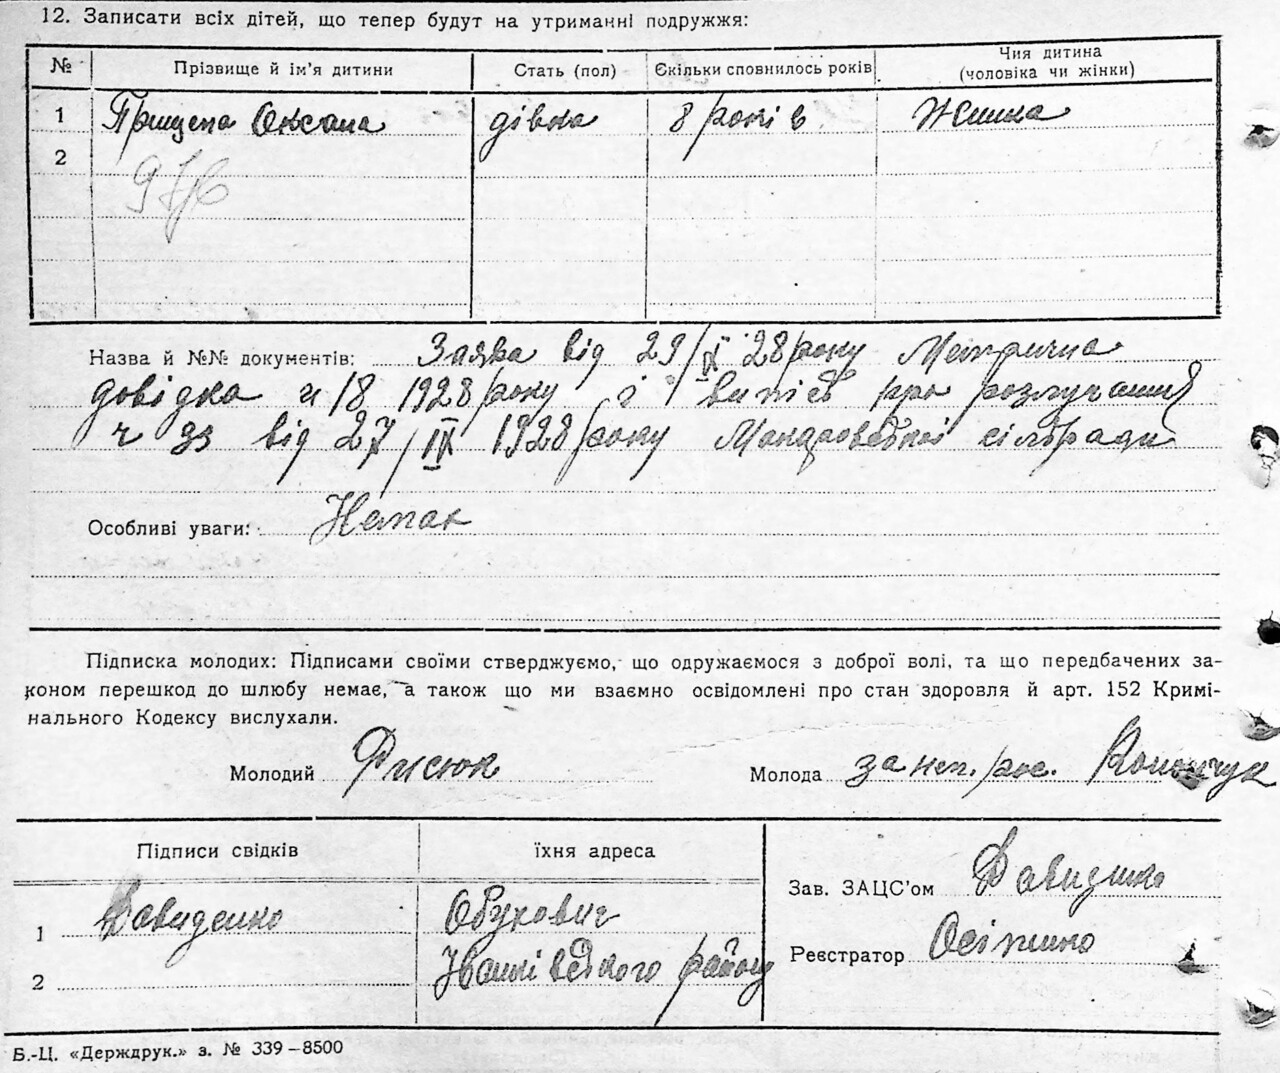 12. Записати всіх дітей, що тепер будут на утриманні подружжя:
№ Прізвище й ім'я дитини Стать (пол) Скільки сповнилось років Чия дитина (чоловіка чи жінки)
1 Грицена Оксана дівка 8 років Жинка
2
Назва й №№ документів: Заява від 29/IX 28 року Метрична
довідка ч 18 1928 року і випісь про розлучання
ч 33 від 27/IX 1928 року сільради
Особливі уваги: Немає
Підписка молодих: Підписами своїми стверджуємо, що одружаємося з доброї волі, та що передбачених за-
коном перешкод до шлюбу немає, а також що ми взаємно освідомлені про стан здоровля й арт. 152 Кримі-
нального Кодексу вислухали.
Молодий Фисюк Молода за неп. рос.
Підписи свідків їхня адреса
Зав. ЗАЦС'ом Давиденко
1 Давиденко Обуховичі
Реєстратор
2 Іванківського району
Б.-Ц. «Держдрук.» з. № 339–8500